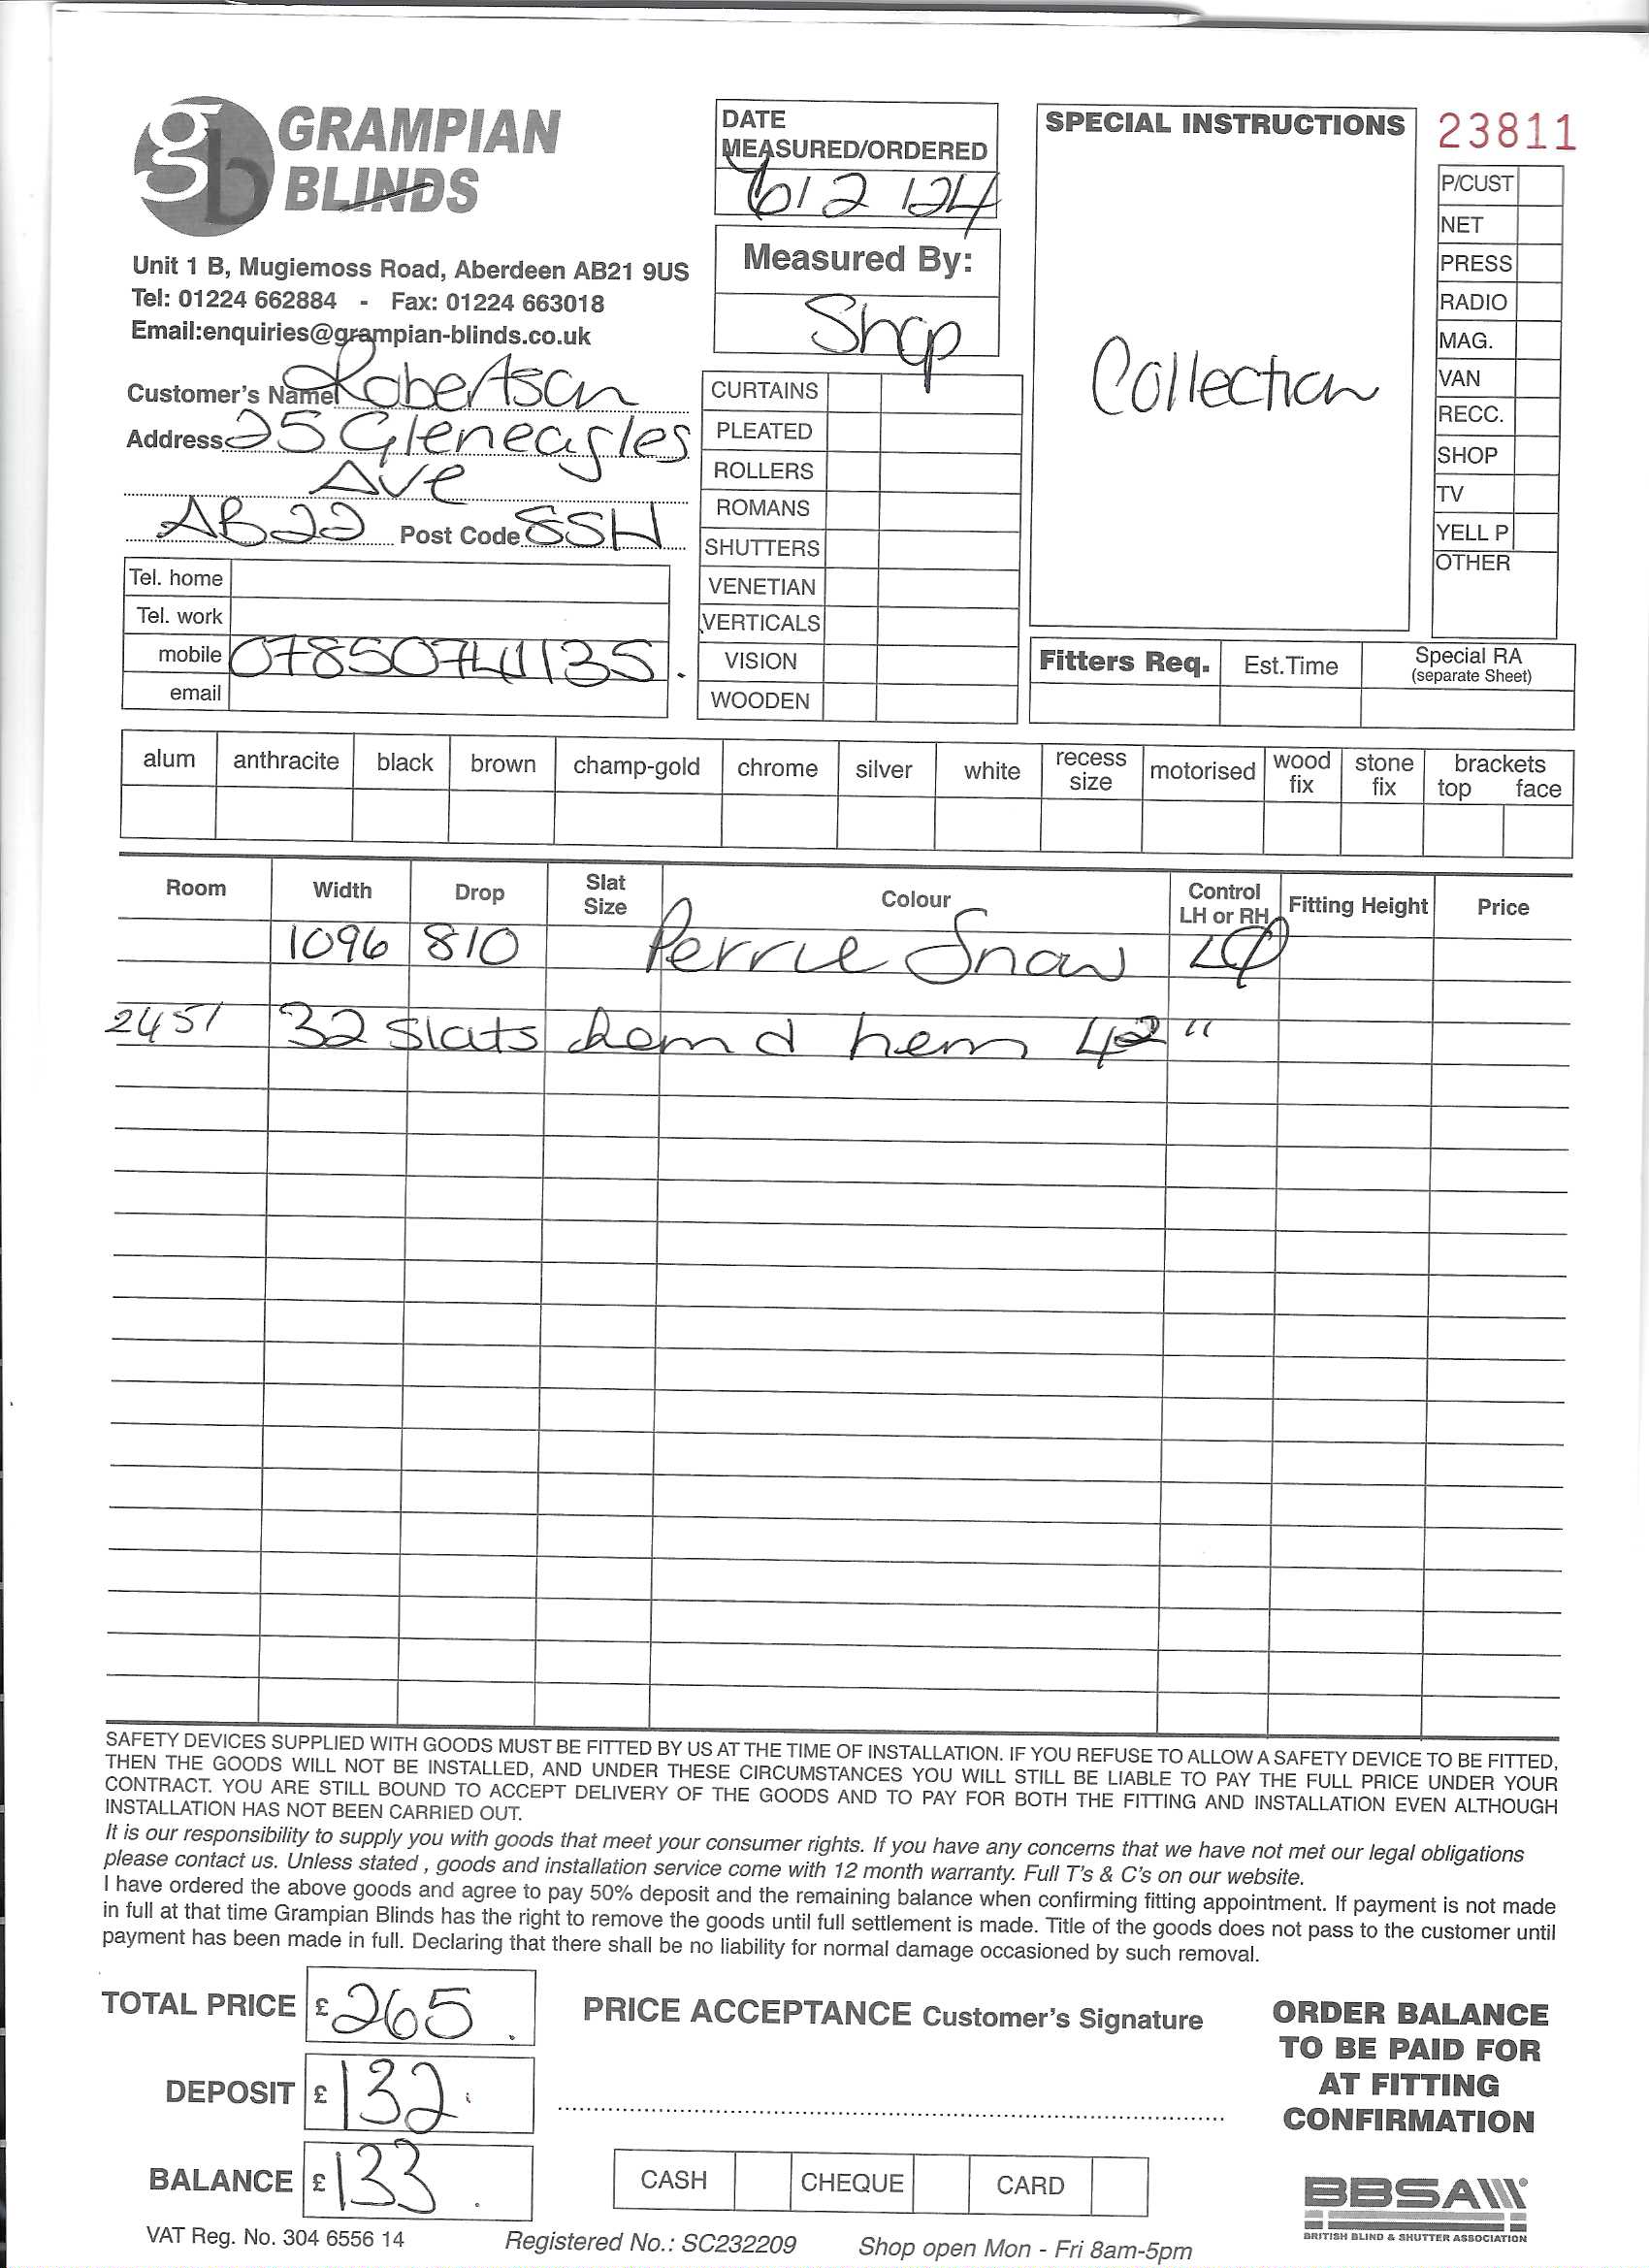 GRAMPIAN
BLINDS
Unit 1 B, Mugiemoss Road, Aberdeen AB21 9US
Tel: 01224 662884 - Fax: 01224 663018
Email:enquiries@grampian-blinds.co.uk
Customer's Name Robertson
Address 25 Gleneagles
Ave
AB22 Post Code 8SH
Tel. home
Tel. work
mobile 07850741135.
email
DATE
MEASURED/ORDERED
6/2/24
Measured By:
Shop
CURTAINS
PLEATED
ROLLERS
ROMANS
SHUTTERS
VENETIAN
VERTICALS
VISION
WOODEN
SPECIAL INSTRUCTIONS
Collection
23811
P/CUST
NET
PRESS
RADIO
MAG.
VAN
RECC.
SHOP
TV
YELL P
OTHER
Fitters Req. Est.Time Special RA
(separate Sheet)
alum anthracite black brown champ-gold chrome silver white recess size motorised wood fix stone fix brackets top face
Room Width Drop Slat Size Colour Control LH or RH Fitting Height Price
1096 810 Perrie Snow
2451 32 Slats hem 42"
SAFETY DEVICES SUPPLIED WITH GOODS MUST BE FITTED BY US AT THE TIME OF INSTALLATION. IF YOU REFUSE TO ALLOW A SAFETY DEVICE TO BE FITTED,
THEN THE GOODS WILL NOT BE INSTALLED, AND UNDER THESE CIRCUMSTANCES YOU WILL STILL BE LIABLE TO PAY THE FULL PRICE UNDER YOUR
CONTRACT. YOU ARE STILL BOUND TO ACCEPT DELIVERY OF THE GOODS AND TO PAY FOR BOTH THE FITTING AND INSTALLATION EVEN ALTHOUGH
INSTALLATION HAS NOT BEEN CARRIED OUT.
It is our responsibility to supply you with goods that meet your consumer rights. If you have any concerns that we have not met our legal obligations
please contact us. Unless stated , goods and installation service come with 12 month warranty. Full T's & C's on our website.
I have ordered the above goods and agree to pay 50% deposit and the remaining balance when confirming fitting appointment. If payment is not made
in full at that time Grampian Blinds has the right to remove the goods until full settlement is made. Title of the goods does not pass to the customer until
payment has been made in full. Declaring that there shall be no liability for normal damage occasioned by such removal.
TOTAL PRICE £ 265.
DEPOSIT £ 132.
BALANCE £ 133.
PRICE ACCEPTANCE Customer's Signature
CASH CHEQUE CARD
ORDER BALANCE
TO BE PAID FOR
AT FITTING
CONFIRMATION
BBSA
BRITISH BLIND & SHUTTER ASSOCIATION
VAT Reg. No. 304 6556 14 Registered No.: SC232209 Shop open Mon - Fri 8am-5pm